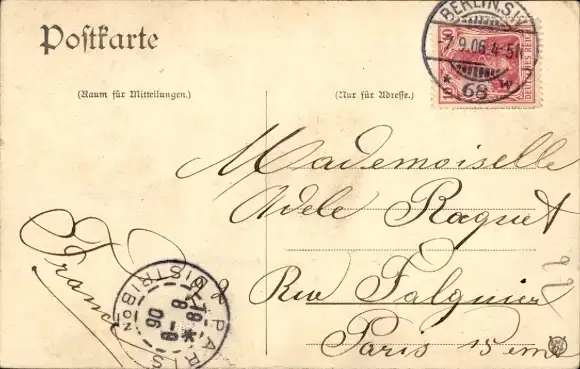 Postkarte
(Raum für Mitteilungen.)
(Nur für Adresse.)
BERLIN.S.W.
7.9.06.4-5N
* 68
DEUTSCHES REICH
10
Mademoiselle
Adele Raquet
Rue Falguier
Paris 15 eme
France
PARIS
DISTRIBON
8-9
06